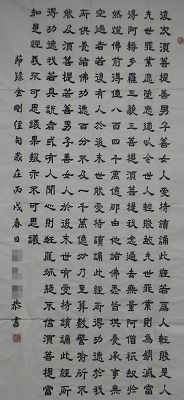 復次須菩提善男子善女人受持讀誦此經若為人輕賤是人
先世罪業應墮惡道以今世人輕賤故先世罪業則為銷滅當
得阿耨多羅三藐三菩提須菩提我念過去無量阿僧祇劫於
然燈佛前得值八百四千萬億那由他諸佛悉皆供養承事無
空過者若復有人於後末世能受持讀誦此經所得功德於我
所供養諸佛功德百分不及一千萬億分乃至算數譬喻所不
能及須菩提若善男子善女人於後末世有受持讀誦此經所
得功德我若具說者或有人聞心則狂亂狐疑不信須菩提當
知是經義不可思議果報亦不可思議
節錄金剛經句歲在丙戌春日 恭書